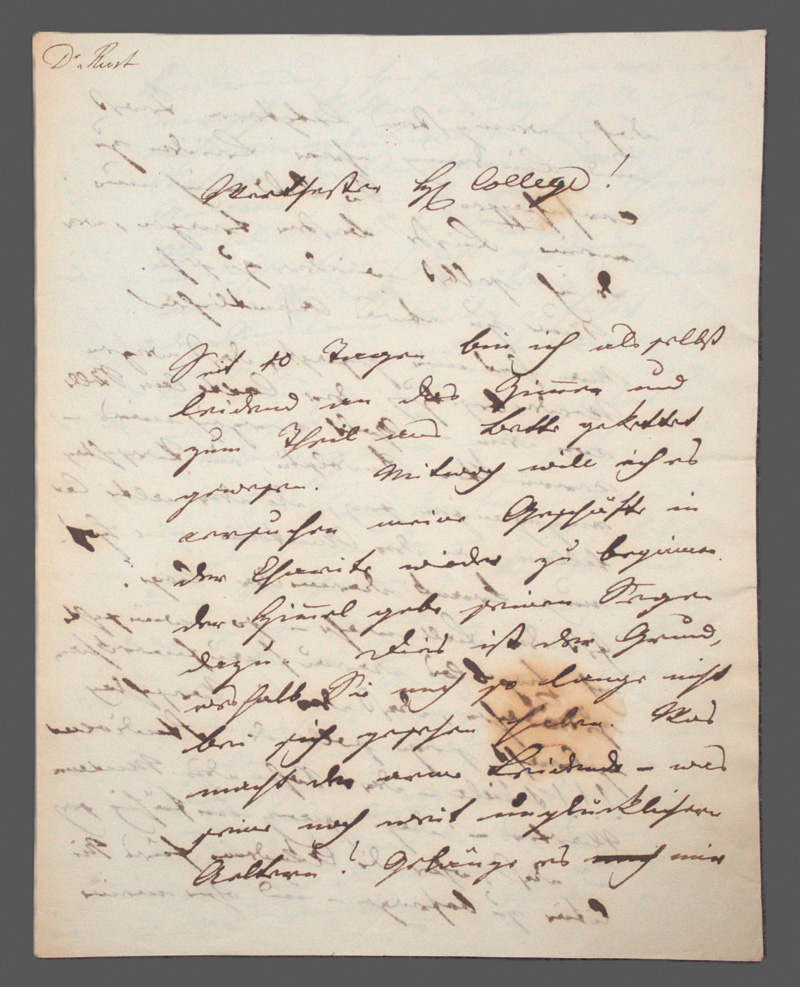 Dr. Rust
Werthester H. College!
Seit 10 Tagen bin ich als selbst
leidend an das Zimmer und
zum Theil ans Bette gekettet
gewesen. Mitwoch will ich es
versuchen meine Geschäfte in
der Charité wieder zu beginnen.
der Himmel gebe seinen Segen
dazu. Dies ist der Grund,
weshalb Sie mich so lange nicht
bei sich gesehen haben. Was
macht der arme Leidende – was
seine noch weit unglücklichern
Aeltern! Gelänge es mir